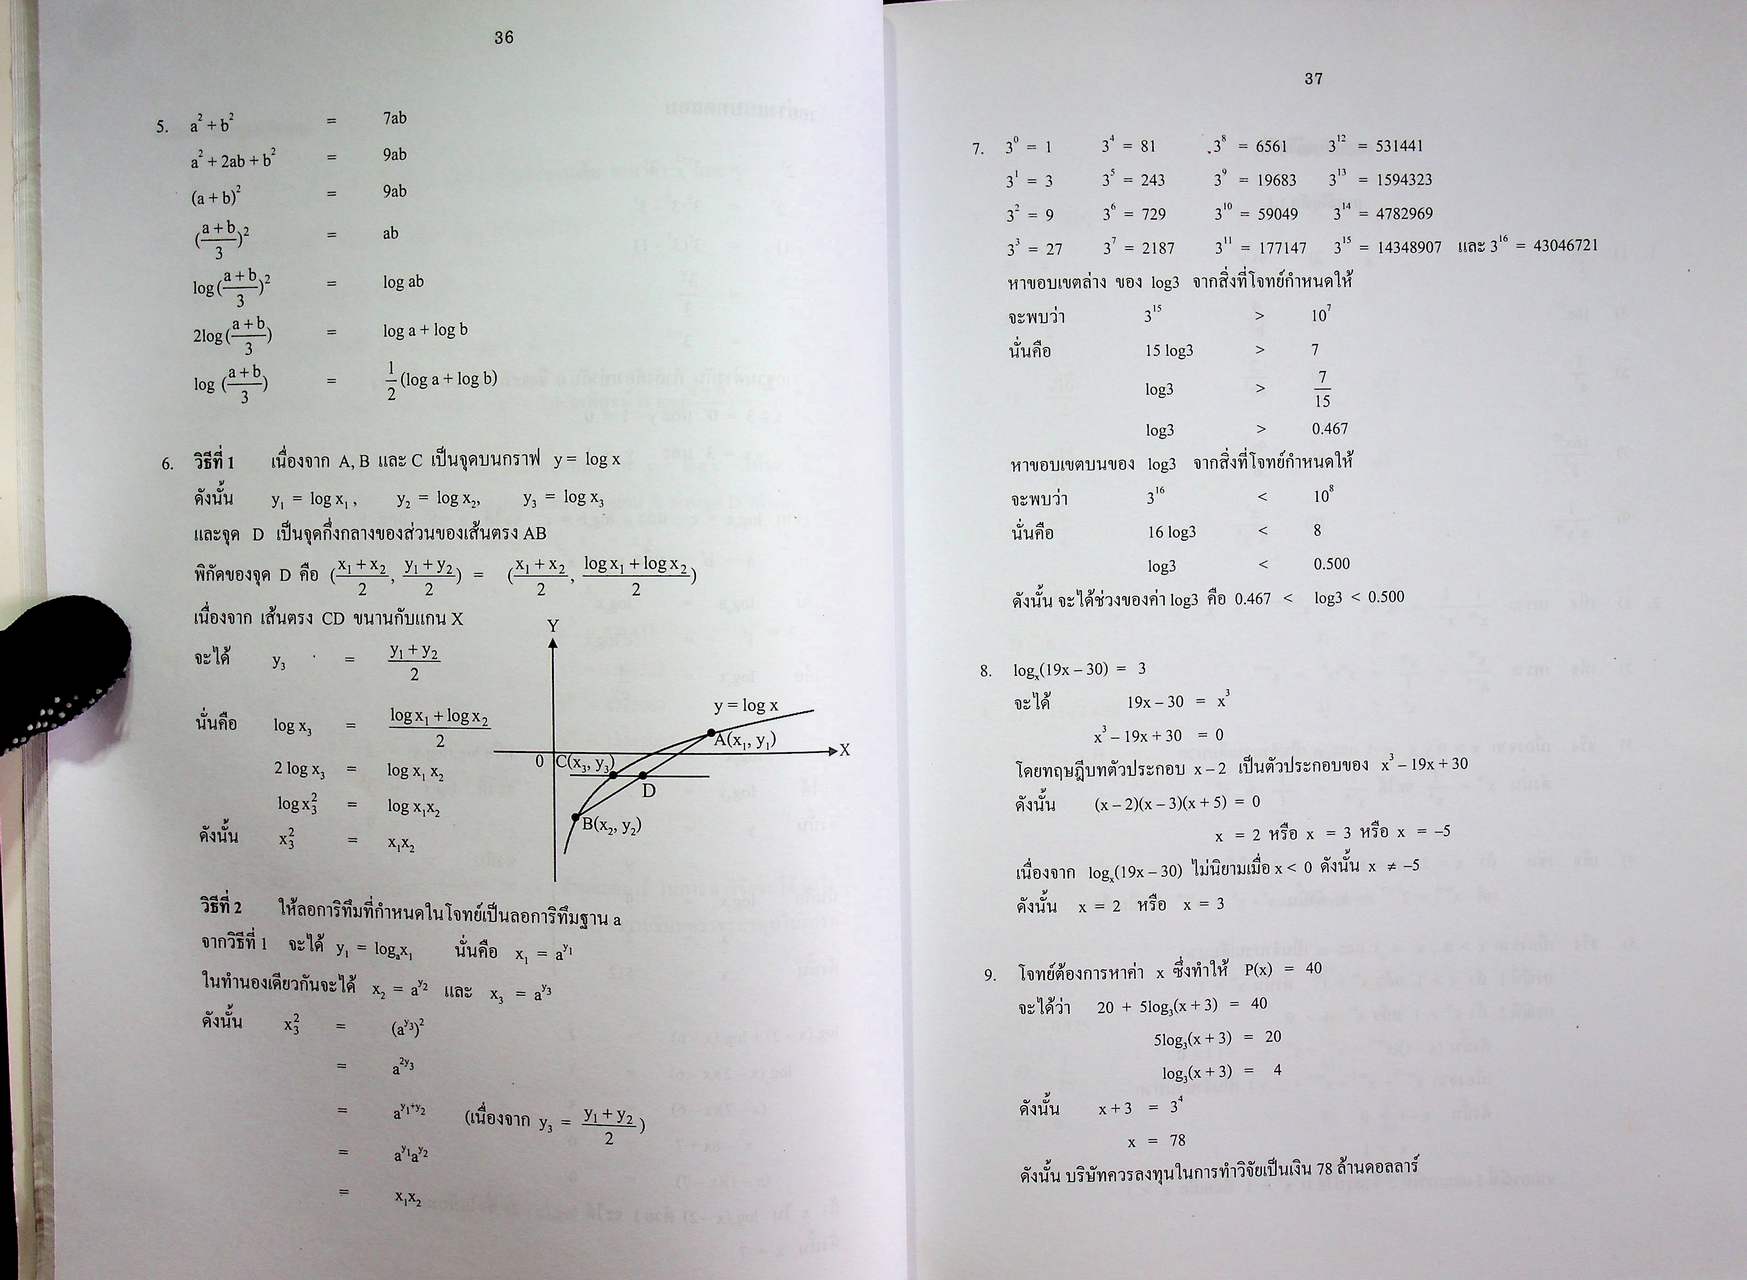 36
5. a² + b² = 7ab
a² + 2ab + b² = 9ab
(a + b)² = 9ab
((a + b)/3)² = ab
log((a + b)/3)² = log ab
2log((a + b)/3) = log a + log b
log ((a + b)/3) = 1/2 (log a + log b)
6. วิธีที่ 1 เนื่องจาก A, B และ C เป็นจุดบนกราฟ y = log x
ดังนั้น y₁ = log x₁ , y₂ = log x₂, y₃ = log x₃
และจุด D เป็นจุดกึ่งกลางของส่วนของเส้นตรง AB
พิกัดของจุด D คือ ((x₁ + x₂)/2, (y₁ + y₂)/2) = ((x₁ + x₂)/2, (log x₁ + log x₂)/2)
เนื่องจาก เส้นตรง CD ขนานกับแกน X
จะได้ y₃ = (y₁ + y₂)/2
นั่นคือ log x₃ = (log x₁ + log x₂)/2
2 log x₃ = log x₁ x₂
log x₃² = log x₁x₂
ดังนั้น x₃² = x₁x₂
Y
y = log x
A(x₁, y₁)
X
0
C(x₃, y₃)
D
B(x₂, y₂)
วิธีที่ 2 ให้ลอการิทึมที่กำหนดในโจทย์เป็นลอการิทึมฐาน a
จากวิธีที่ 1 จะได้ y₁ = logₐx₁ นั่นคือ x₁ = a^y₁
ในทำนองเดียวกันจะได้ x₂ = a^y₂ และ x₃ = a^y₃
ดังนั้น x₃² = (a^y₃)²
= a^2y₃
= a^(y₁+y₂) (เนื่องจาก y₃ = (y₁ + y₂)/2)
= a^y₁ a^y₂
= x₁x₂
37
7. 3⁰ = 1 3⁴ = 81 3⁸ = 6561 3¹² = 531441
3¹ = 3 3⁵ = 243 3⁹ = 19683 3¹³ = 1594323
3² = 9 3⁶ = 729 3¹⁰ = 59049 3¹⁴ = 4782969
3³ = 27 3⁷ = 2187 3¹¹ = 177147 3¹⁵ = 14348907 และ 3¹⁶ = 43046721
หาขอบเขตล่าง ของ log3 จากสิ่งที่โจทย์กำหนดให้
จะพบว่า 3¹⁵ > 10⁷
นั่นคือ 15 log3 > 7
log3 > 7/15
log3 > 0.467
หาขอบเขตบนของ log3 จากสิ่งที่โจทย์กำหนดให้
จะพบว่า 3¹⁶ < 10⁸
นั่นคือ 16 log3 < 8
log3 < 0.500
ดังนั้น จะได้ช่วงของค่า log3 คือ 0.467 < log3 < 0.500
8. logₓ(19x – 30) = 3
จะได้ 19x – 30 = x³
x³ – 19x + 30 = 0
โดยทฤษฎีบทตัวประกอบ x – 2 เป็นตัวประกอบของ x³ – 19x + 30
ดังนั้น (x – 2)(x – 3)(x + 5) = 0
x = 2 หรือ x = 3 หรือ x = –5
เนื่องจาก logₓ(19x – 30) ไม่นิยามเมื่อ x < 0 ดังนั้น x ≠ –5
ดังนั้น x = 2 หรือ x = 3
9. โจทย์ต้องการหาค่า x ซึ่งทำให้ P(x) = 40
จะได้ว่า 20 + 5log₃(x + 3) = 40
5log₃(x + 3) = 20
log₃(x + 3) = 4
ดังนั้น x + 3 = 3⁴
x = 78
ดังนั้น บริษัทควรลงทุนในการทำวิจัยเป็นเงิน 78 ล้านดอลลาร์